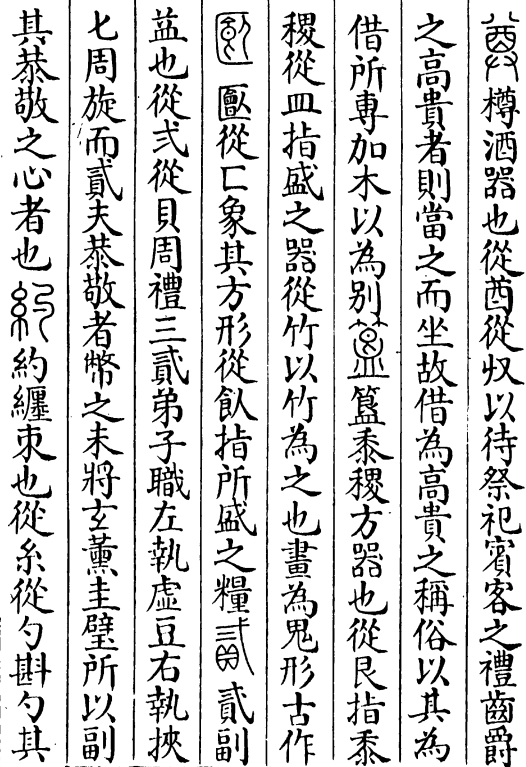 尊樽酒器也從酋從収以待祭祀賓客之禮齒爵
之高貴者則當之而坐故借為高貴之稱俗以其為
借所專加木以為别簋簋黍稷方器也從艮指黍
稷從皿指盛之器從竹以竹為之也畫為鬼形古作
匭從匚象其方形從飤指所盛之糧貳貳副
益也從弍從貝周禮三貳弟子職左執虛豆右執挾
匕周旋而貳夫恭敬者幣之未將玄薫圭璧所以副
其恭敬之心者也約約纏束也從糸從勺斟勺其